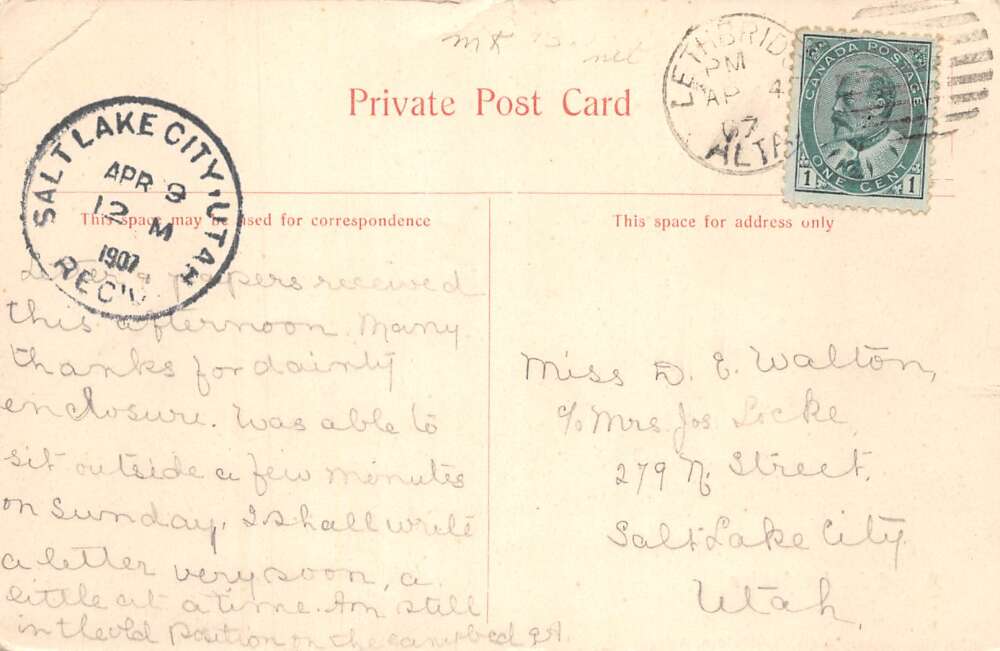 mk
net
Private Post Card
LETHBRIDG
PM
AP 4
07
ALTA
CANADA POSTAGE
1 ONE CENT 1
SALT LAKE CITY, UTAH
APR 9
12 M
1907
REC'V
This space may be used for correspondence
This space for address only
papers received
this afternoon. Many
thanks for dainty
enclosure. Was able to
sit outside a few minutes
on Sunday. I shall write
a letter very soon, a
little at a time. Am still
in the old position on the camp bed
Miss D. E. Walton,
c/o Mrs. Jos Locke
279 N. Street.
Salt Lake City
Utah.